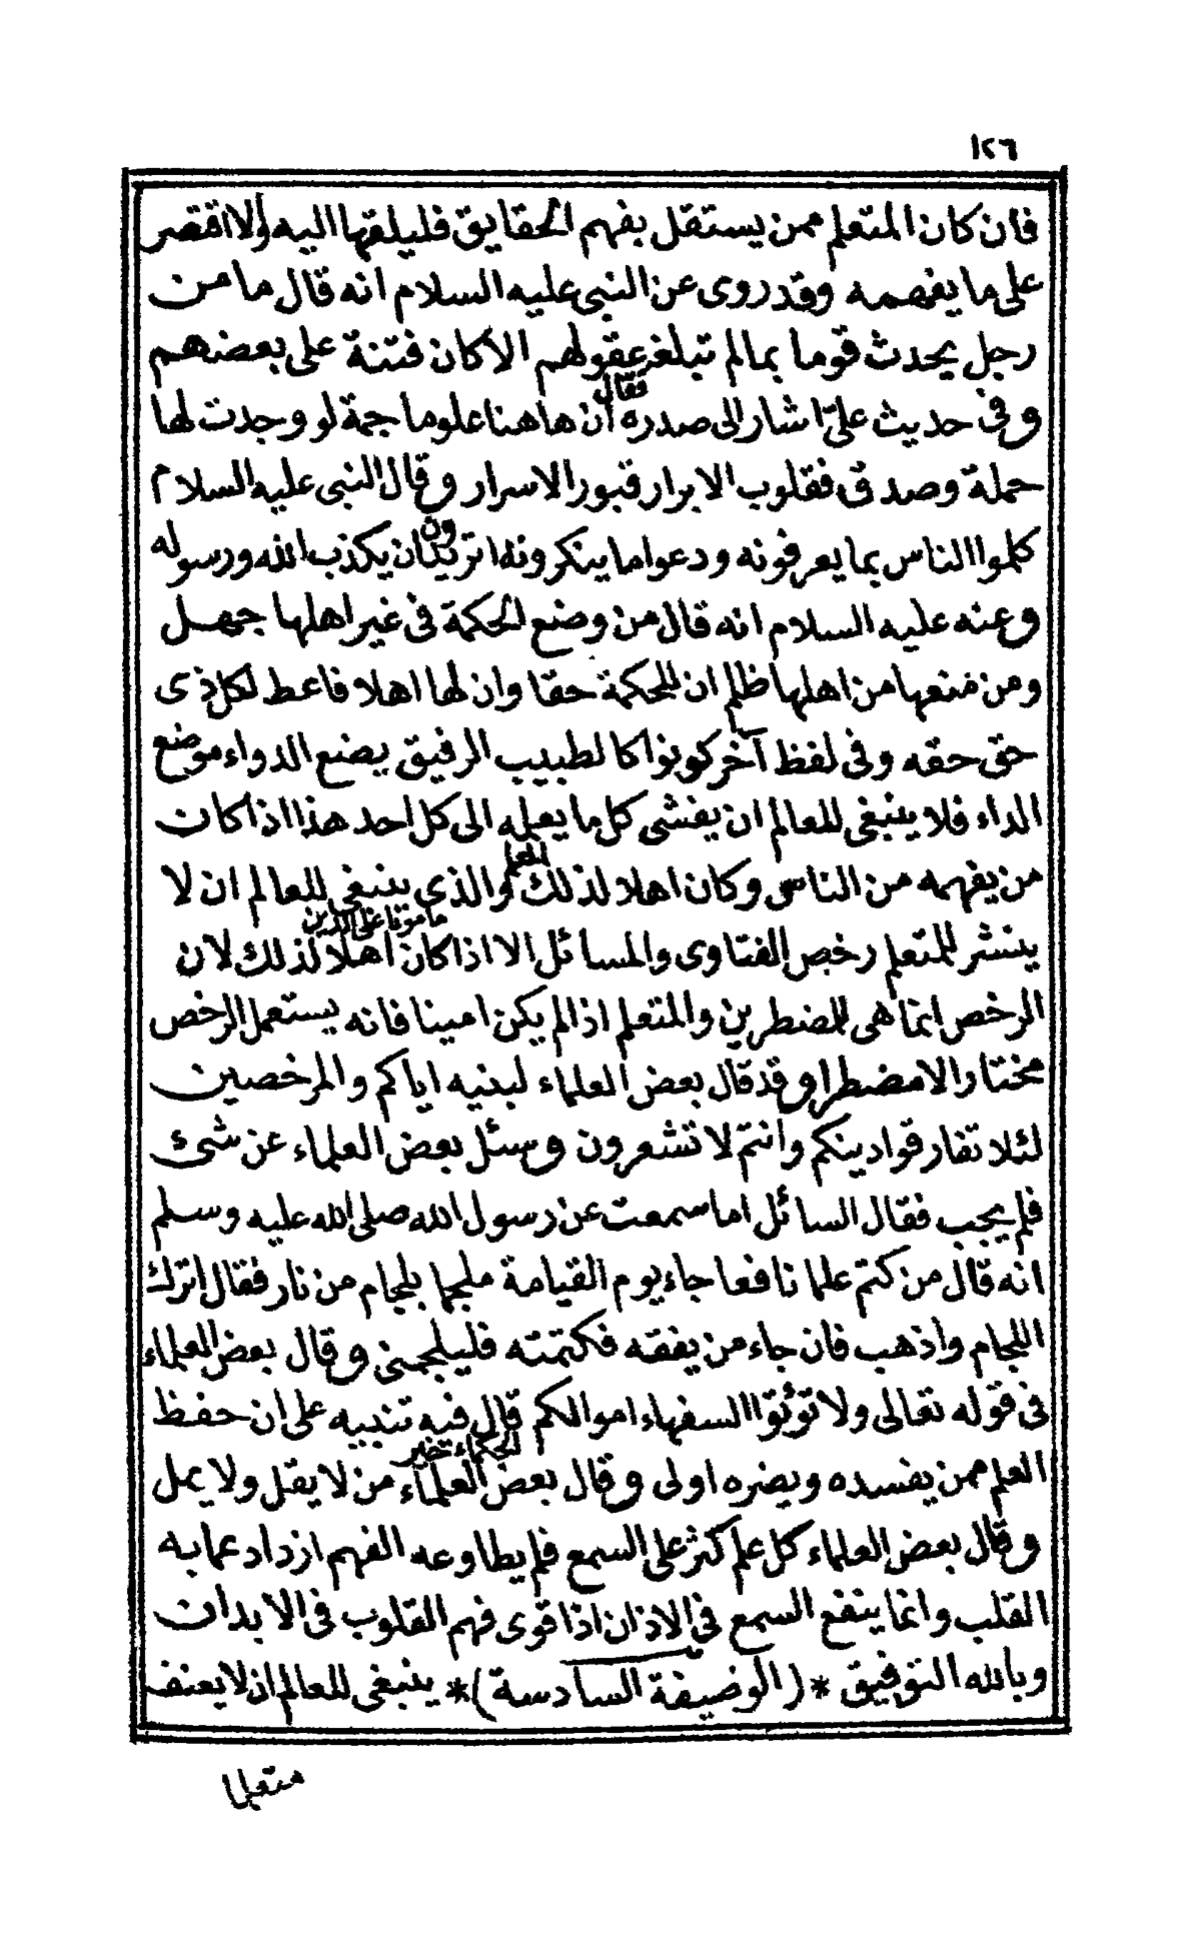 ١٢٦
فان كان المتعلم ممن يستقل بفهم الحقايق فليلقها اليه والا اقتصر
على ما يفهمه وقد روى عن النبى عليه السلام انه قال ما من
رجل يحدث قوما بمالم تبلغه عقولهم الا كان فتنة على بعضهم
فقال
وفى حديث علىّ اشار الى صدره ان هاهنا علوما جمة لو وجدت لها
حملة وصدق فقلوب الابرار قبور الاسرار وقال النبى عليه السلام
كلموا الناس بما يعرفونه ودعوا ما ينكرونه اتريدون ان يكذب الله ورسوله
وعنه عليه السلام انه قال من وضع الحكمة فى غير اهلها جهل
ومن منعها من اهلها ظلم ان للحكمة حقا وان لها اهلا فاعط لكل ذى
حق حقه وفى لفظ آخر كونوا كالطبيب الرفيق يضع الدواء موضع
الداء فلا ينبغى للعالم ان يفشى كل ما يعلمه الى كل احد هذا اذا كان
المعلم
من يفهمه من الناس وكان اهلا لذلك والذى ينبغى للعالم ان لا
مامونا على الدين
ينشر للمتعلم رخص الفتاوى والمسائل الا اذا كان اهلا لذلك لان
الرخص انما هى للمضطرين والمتعلم اذا لم يكن امينا فانه يستعمل الرخص
مختارا لا مضطرا وقد قال بعض العلماء لبنيه اياكم والمرخصين
لئلا تفارقوا دينكم وانتم لا تشعرون وسئل بعض العلماء عن شئ
فلم يجب فقال السائل اما سمعت عن رسول الله صلى الله عليه وسلم
انه قال من كتم علما نافعا جاء يوم القيامة ملجما بلجام من نار فقال اترك
اللجام واذهب فان جاء من يفقه فكتمته فليلجمنى وقال بعض العلماء
فى قوله تعالى ولا تؤتوا السفهاء اموالكم قال فيه تنبيه على ان حفظ
الحكماء خير
العلم ممن يفسده ويضره اولى وقال بعض العلماء من لا يقل ولا يمل
وقال بعض العلماء كل علم كثر على السمع فلم يطاوعه الفهم ازداد عمابه
القلب وانما ينفع السمع فى الاذان اذا قوى فهم القلوب فى الابدان
وبالله التوفيق * (الوضيفة السادسة) * ينبغى للعالم ان لا يعنف
متعلما